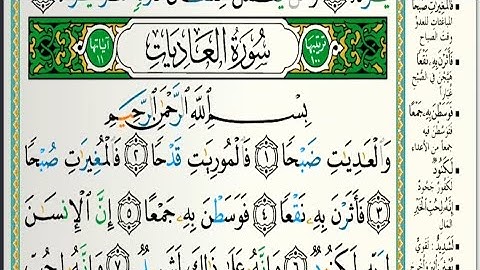 آياتها ١١
سُورَةُ العَادِيَاتِ
ترتيبها ١٠٠
بِسْمِ ٱللَّهِ ٱلرَّحْمَٰنِ ٱلرَّحِيمِ
وَٱلْعَٰدِيَٰتِ ضَبْحًا ١ فَٱلْمُورِيَٰتِ قَدْحًا ٢ فَٱلْمُغِيرَٰتِ صُبْحًا
٣ فَأَثَرْنَ بِهِۦ نَقْعًا ٤ فَوَسَطْنَ بِهِۦ جَمْعًا ٥ إِنَّ ٱلْإِنسَٰنَ
لِرَبِّهِۦ لَكَنُودٌ ٦ وَإِنَّهُۥ عَلَىٰ ذَٰلِكَ لَشَهِيدٌ ٧ وَإِنَّهُۥ لِحُبِّ
فَالْمُغِيرَاتِ صُبْحًا
المباغتات للعدو
وقت الصباح
فَأَثَرْنَ بِهِ نَقْعًا
هيّجن في الصبح
غباراً
فَوَسَطْنَ بِهِ جَمْعًا
فتوسطن فيه
جمعاً من الأعداء
لَكَنُودٌ
لكفور جحود
إِنَّهُ لِحُبِّ الْخَيْرِ
المال
لَشَدِيدٌ : لقوي